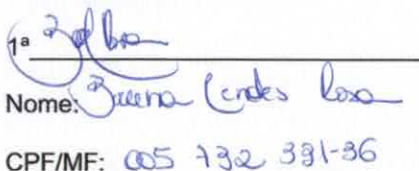 1ª
Nome: Lendes Rosa
CPF/MF: 005 732 391-36